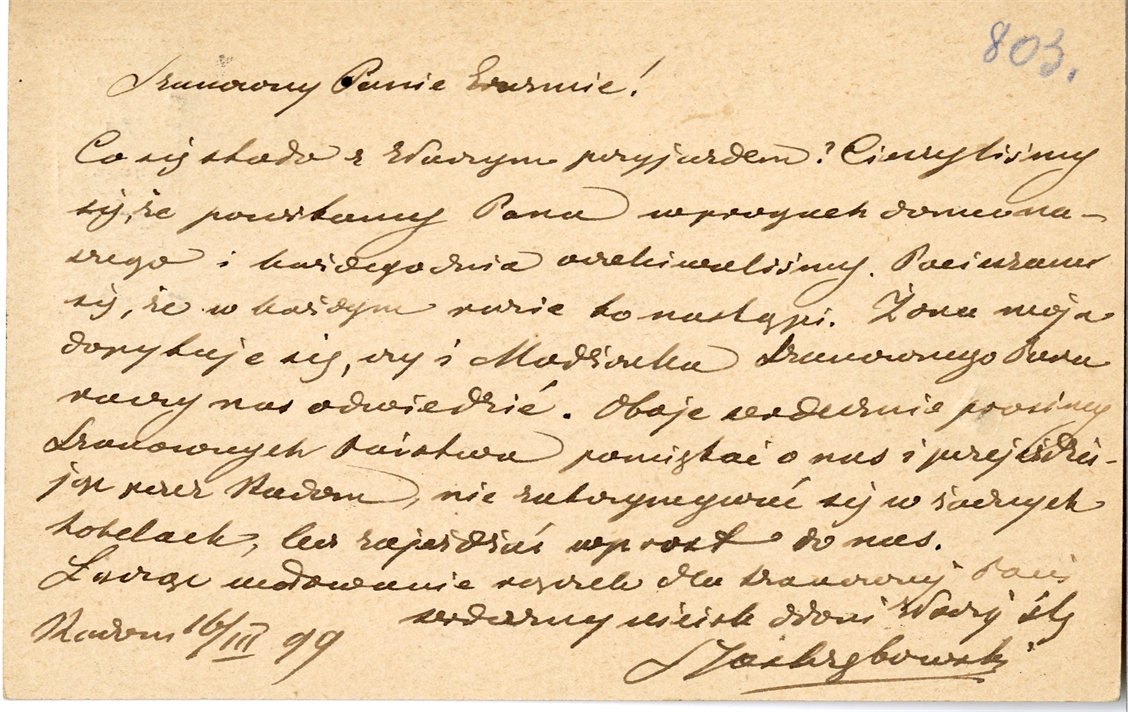 803.
Szanowny Panie Erazmie!
Co się stało z Waszym przyjazdem? Cieszyliśmy
się, że powitamy Pana w progach domu na-
szego i każdego dnia oczekiwaliśmy. Pocieszam
się, że w każdym razie to nastąpi. Żona moja
dopytuje się, czy i Małżonka Szanownego Pana
raczy nas odwiedzić. Oboje serdecznie prosimy
Szanownych Państwa pamiętać o nas i przejeżdża-
jąc przez Radom, nie zatrzymywać się w żadnych
hotelach, lecz zajeżdżać wprost do nas.
Łączę ucałowanie rączek dla Szanownej Pani
serdeczny uścisk dłoni Waszej
Radom 16/III 99
Jastrzębowski